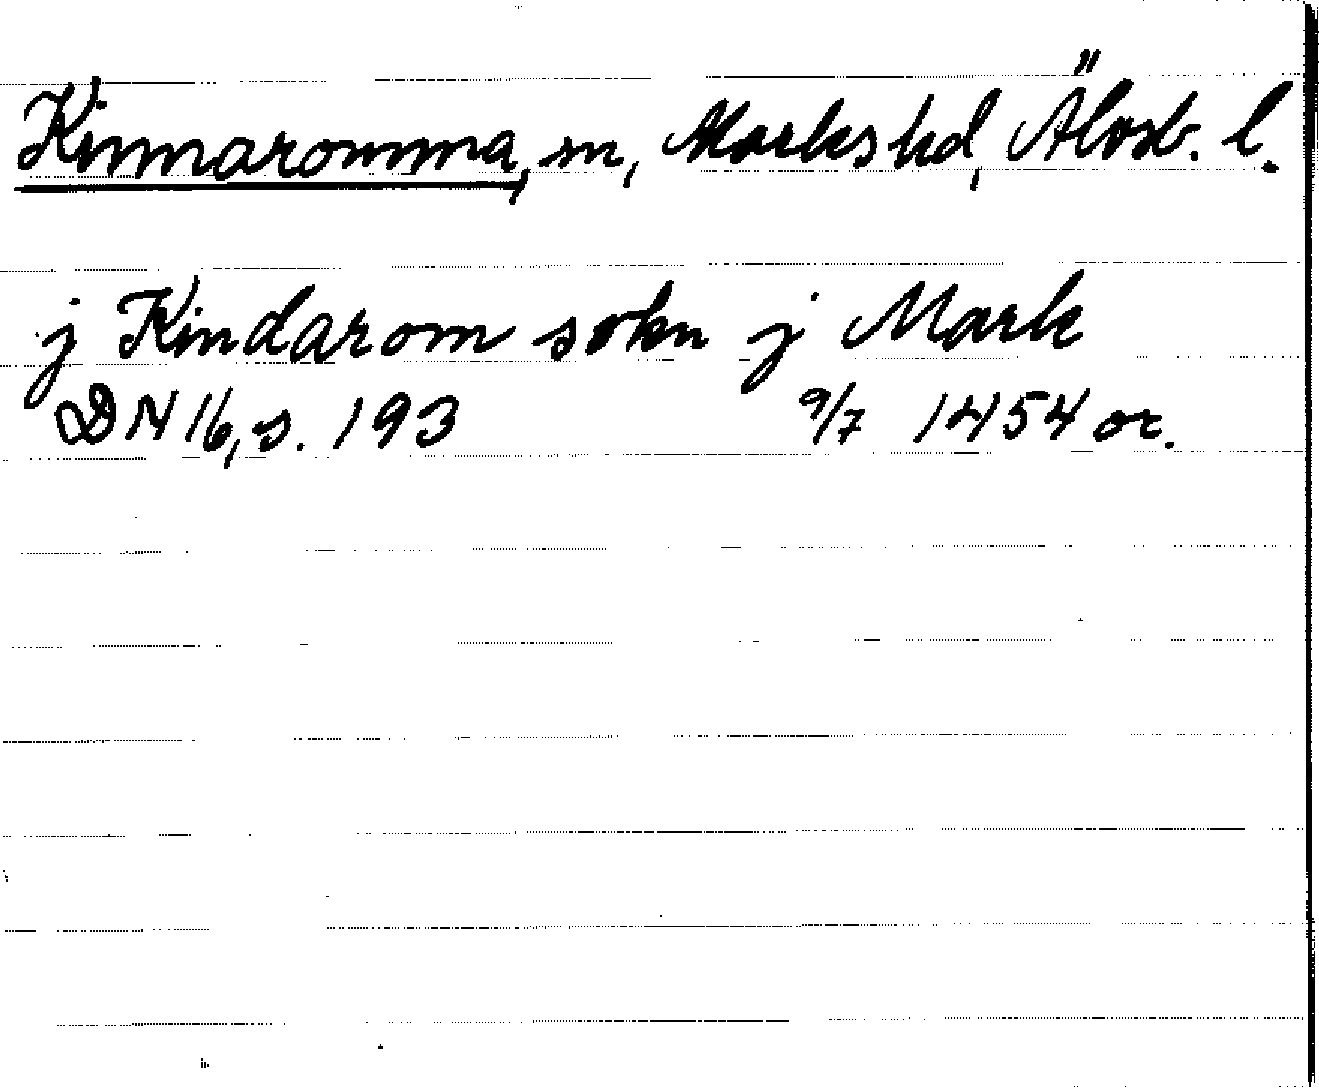 Kinnaromma, sn, Marks hd, Älvsb. l.
j Kindarom sokn j Mark
DN 16, s. 193 9/7 1454 or.